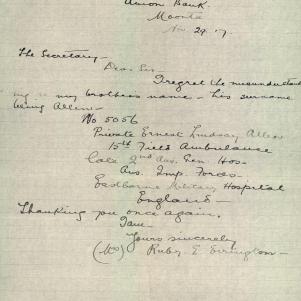 Union Bank.
Moonta
Nov 29. 17.
The Secretary -
Dear Sir
I regret the misunderstand
ing re my brothers name - his surname
being Allen -
No 5056
Private Ernest Lindsay Allen
15th Field Ambulance
late 2nd Aus. Gen. Hos -
Aus. Imp. Forces -
Eastbourne Military Hospital
England -
Thanking you once again.
I am -
Yours sincerely
(Mrs) Ruby E. Errington -